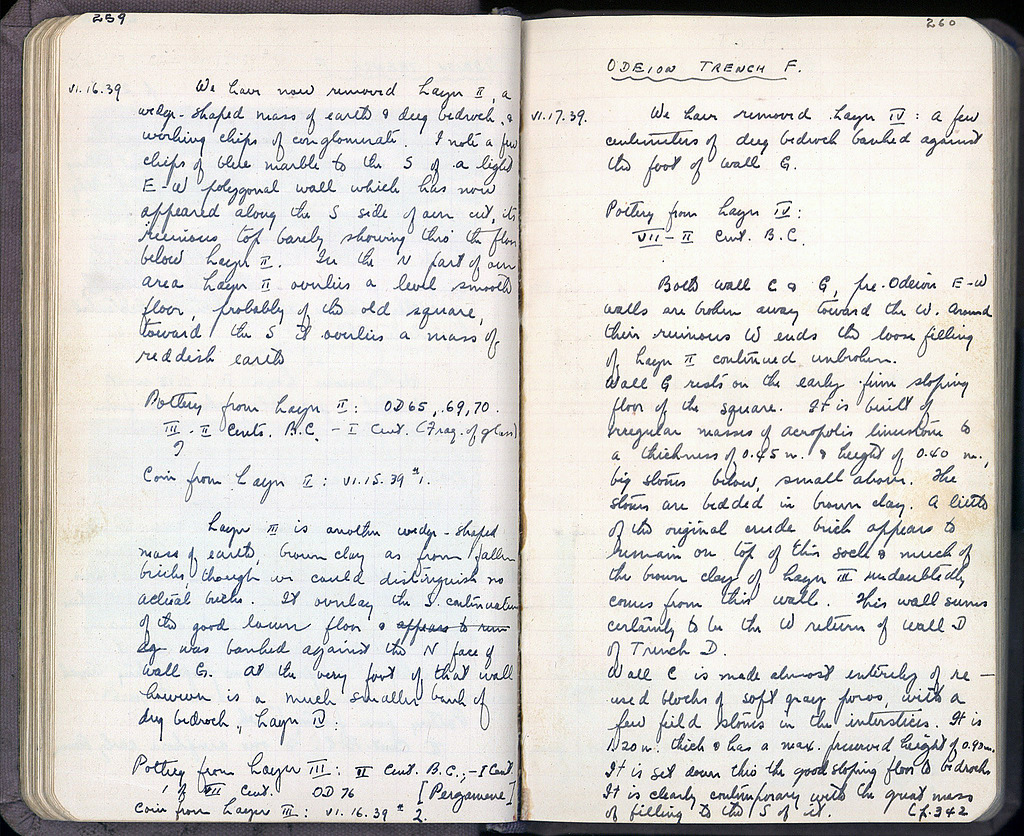 259
VI.16.39 We have now removed Layer II, a
wedge-shaped mass of earth & dug bedrock, &
working chips of conglomerate. I note a few
chips of blue marble to the S of a light
E-W polygonal wall which has now
appeared along the S side of our cut, its
ruinous top barely showing thro the floor
below Layer II. In the N part of our
area Layer II overlies a level smooth
floor, probably of the old square,
toward the S it overlies a mass of
reddish earth
Pottery from Layer II: OD65, 69, 70.
III - II Cents. B.C. - I Cent. (Frag. of glass)
?
Coin from Layer II: VI.15.39 #1.
Layer III is another wedge-shaped
mass of earth, brown clay as from fallen
bricks, though we could distinguish no
actual bricks. It overlay the S. continuation
of the good lower floor & appears to run
ag- was banked against the N face of
Wall G. At the very foot of that wall
however is a much smaller bank of
dug bedrock, Layer IV.
Pottery from Layer III: II Cent. B.C., - I Cent.
1 of VII Cent. OD 76 [Pergamene]
Coin from Layer III: VI.16.39 #2.
260
ODEION TRENCH F.
VI.17.39. We have removed Layer IV: a few
centimeters of dug bedrock banked against
the foot of wall G.
Pottery from Layer IV:
VII - II Cent. B.C.
Both wall C & G, pre-Odeion E-W
walls are broken away toward the W. Around
their ruinous W ends the loose filling
of Layer II continued unbroken.
Wall G rests on the early firm sloping
floor of the square. It is built of
irregular masses of acropolis limestone to
a thickness of 0.45 m. & height of 0.40 m.,
big stones below, small above. The
stones are bedded in brown clay. A little
of the original crude brick appears to
remain on top of this socle & much of
the brown clay of Layer III undoubtedly
comes from this wall. This wall seems
certainly to be the W return of Wall D
of Trench D.
Wall C is made almost entirely of re-
used blocks of soft gray poros, with a
few field stones in the interstices. It is
1.20 m. thick & has a max. preserved height of 0.90 m.
It is set down thro the good sloping floor to bedrock.
It is clearly contemporary with the great mass
of filling to the S of it. (p. 342